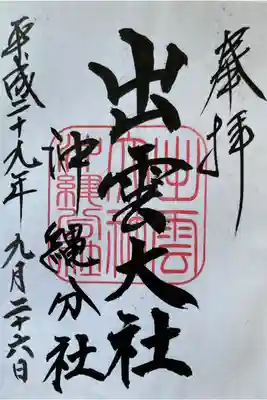 奉拝
出雲大社
沖縄分社
平成二十九年 九月二十六日